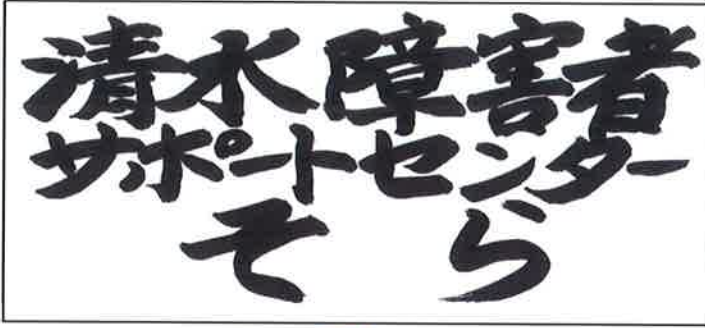 清水障害者
サポートセンター
そら